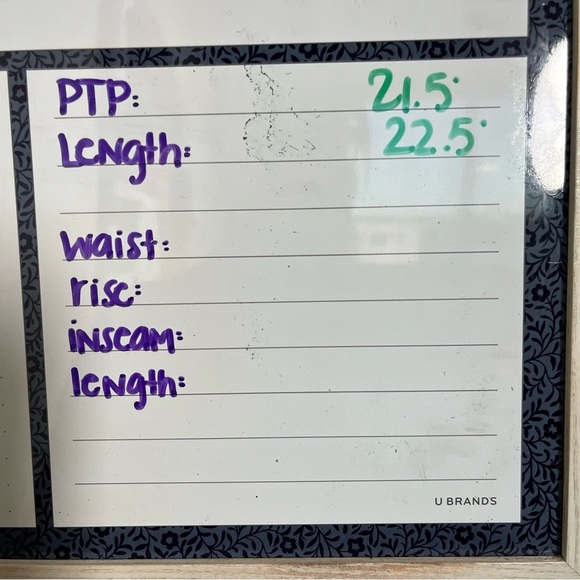 PTP: 21.5"
Length: 22.5"
waist:
rise:
inseam:
length:
U BRANDS